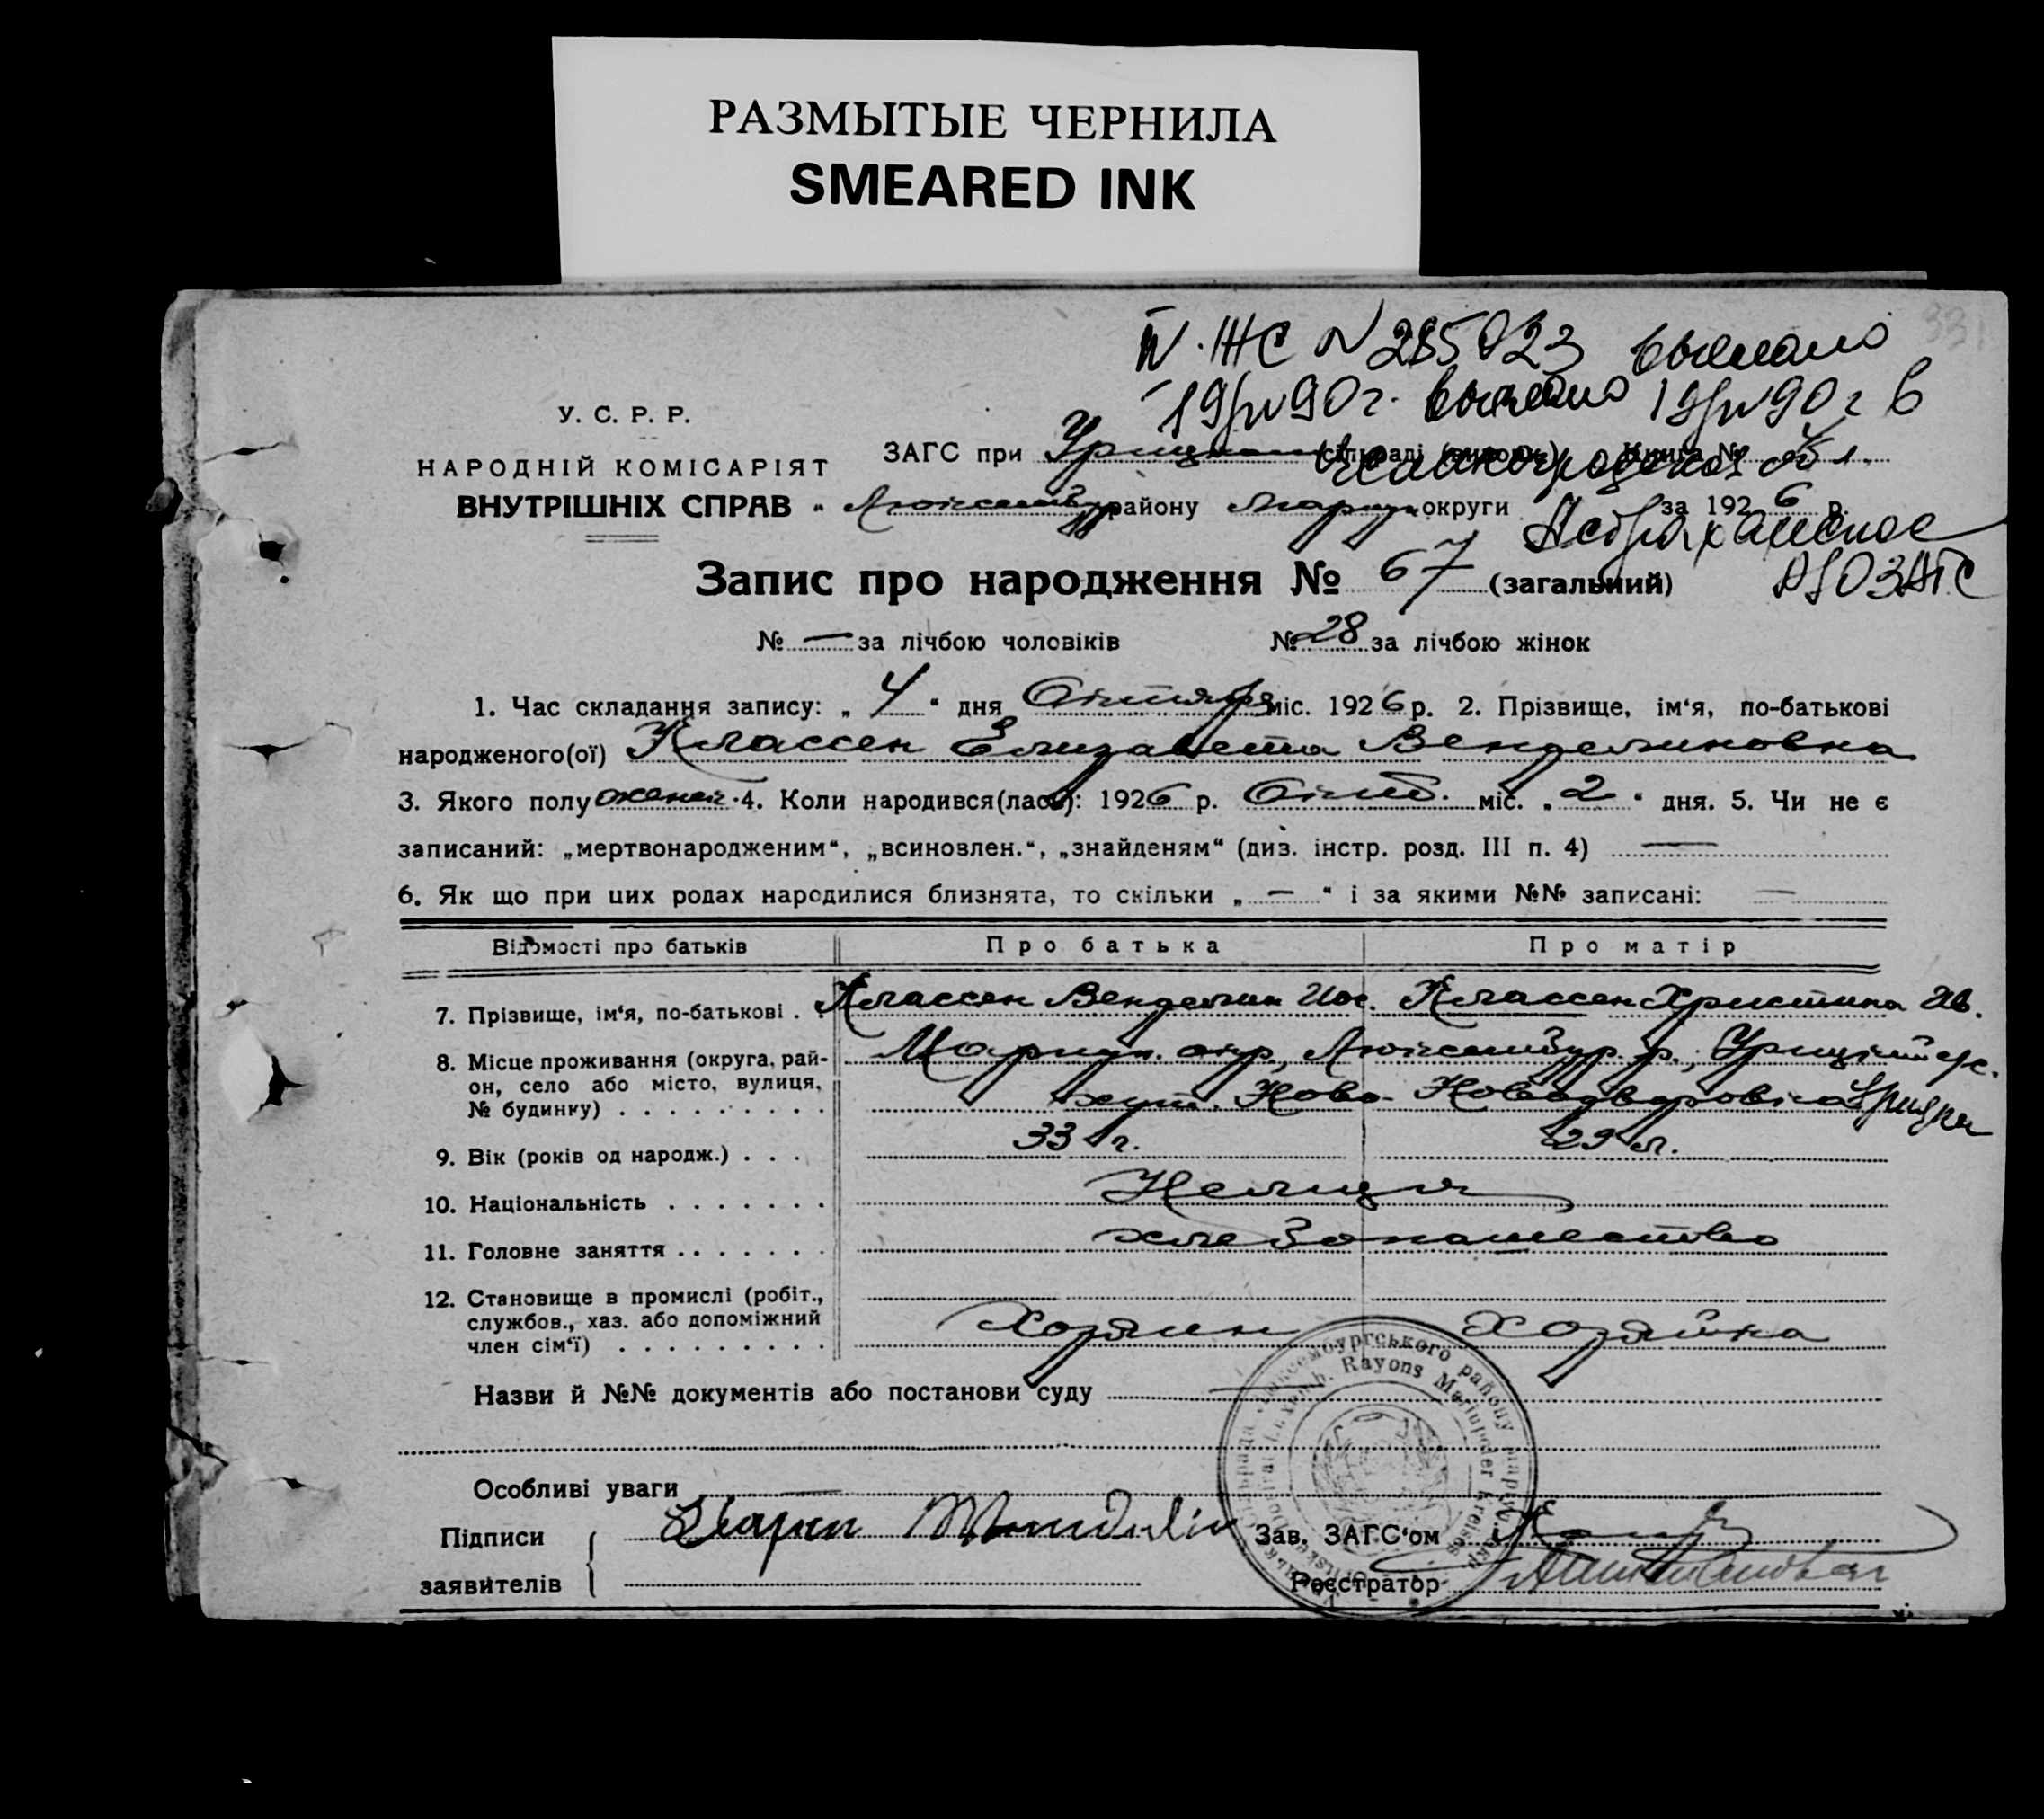 РАЗМЫТЫЕ ЧЕРНИЛА
SMEARED INK
IV-ЖС N 285023 выслано
19/IV 90г. выслано 19/IV 90г в
У. С. Р. Р.
НАРОДНІЙ КОМІСАРІЯТ
ВНУТРІШНІХ СПРАВ
ЗАГС при Урицком (сільраді (викон.) Книга №
Целиноградская обл.
Люксембур району Мариуп. округи за 1926 р.
Астраханское
Р/О ЗАГС
Запис про народження № 67 (загальний)
№ — за лічбою чоловіків № 28 за лічбою жінок
1. Час складання запису: „ 4 “ дня Октября міс. 1926 р. 2. Прізвище, ім‘я, по-батькові
народженого(ої) Классен Елизавета Венделиновна
3. Якого полу женск. 4. Коли народився(лась): 1926 р. Окт. міс. „ 2 “ дня. 5. Чи не є
записаний: „мертвонародженим“, „всиновлен.“, „знайденям“ (див. інстр. розд. III п. 4) —
6. Як що при цих родах народилися близнята, то скільки „ — “ і за якими №№ записані: —
Відомості про батьків Про батька Про матір
7. Прізвище, ім‘я, по-батькові . . Классен Венделин Иос. Классен Христина Ив.
8. Місце проживання (округа, рай-
он, село або місто, вулиця,
№ будинку) . . . . . . . . .
Мариуп. окр., Люксембур. р., Урицкий с/с.
хут. Ново-
9. Вік (років од народж.) . . . 33 г. 29 л.
10. Національність . . . . . . . Немцы
11. Головне заняття . . . . . . . хлебопашество
12. Становище в промислі (робіт.,
службов., хаз. або допоміжний
член сім‘ї) . . . . . . . . .
Хозяин Хозяйка
Назви й №№ документів або постанови суду —
Особливі уваги —
Підписи
заявителів
Зав. ЗАГС‘ом
Реєстратор
Люксембургського району Маріуп. окр.
Rayons Mariupoler Kreises